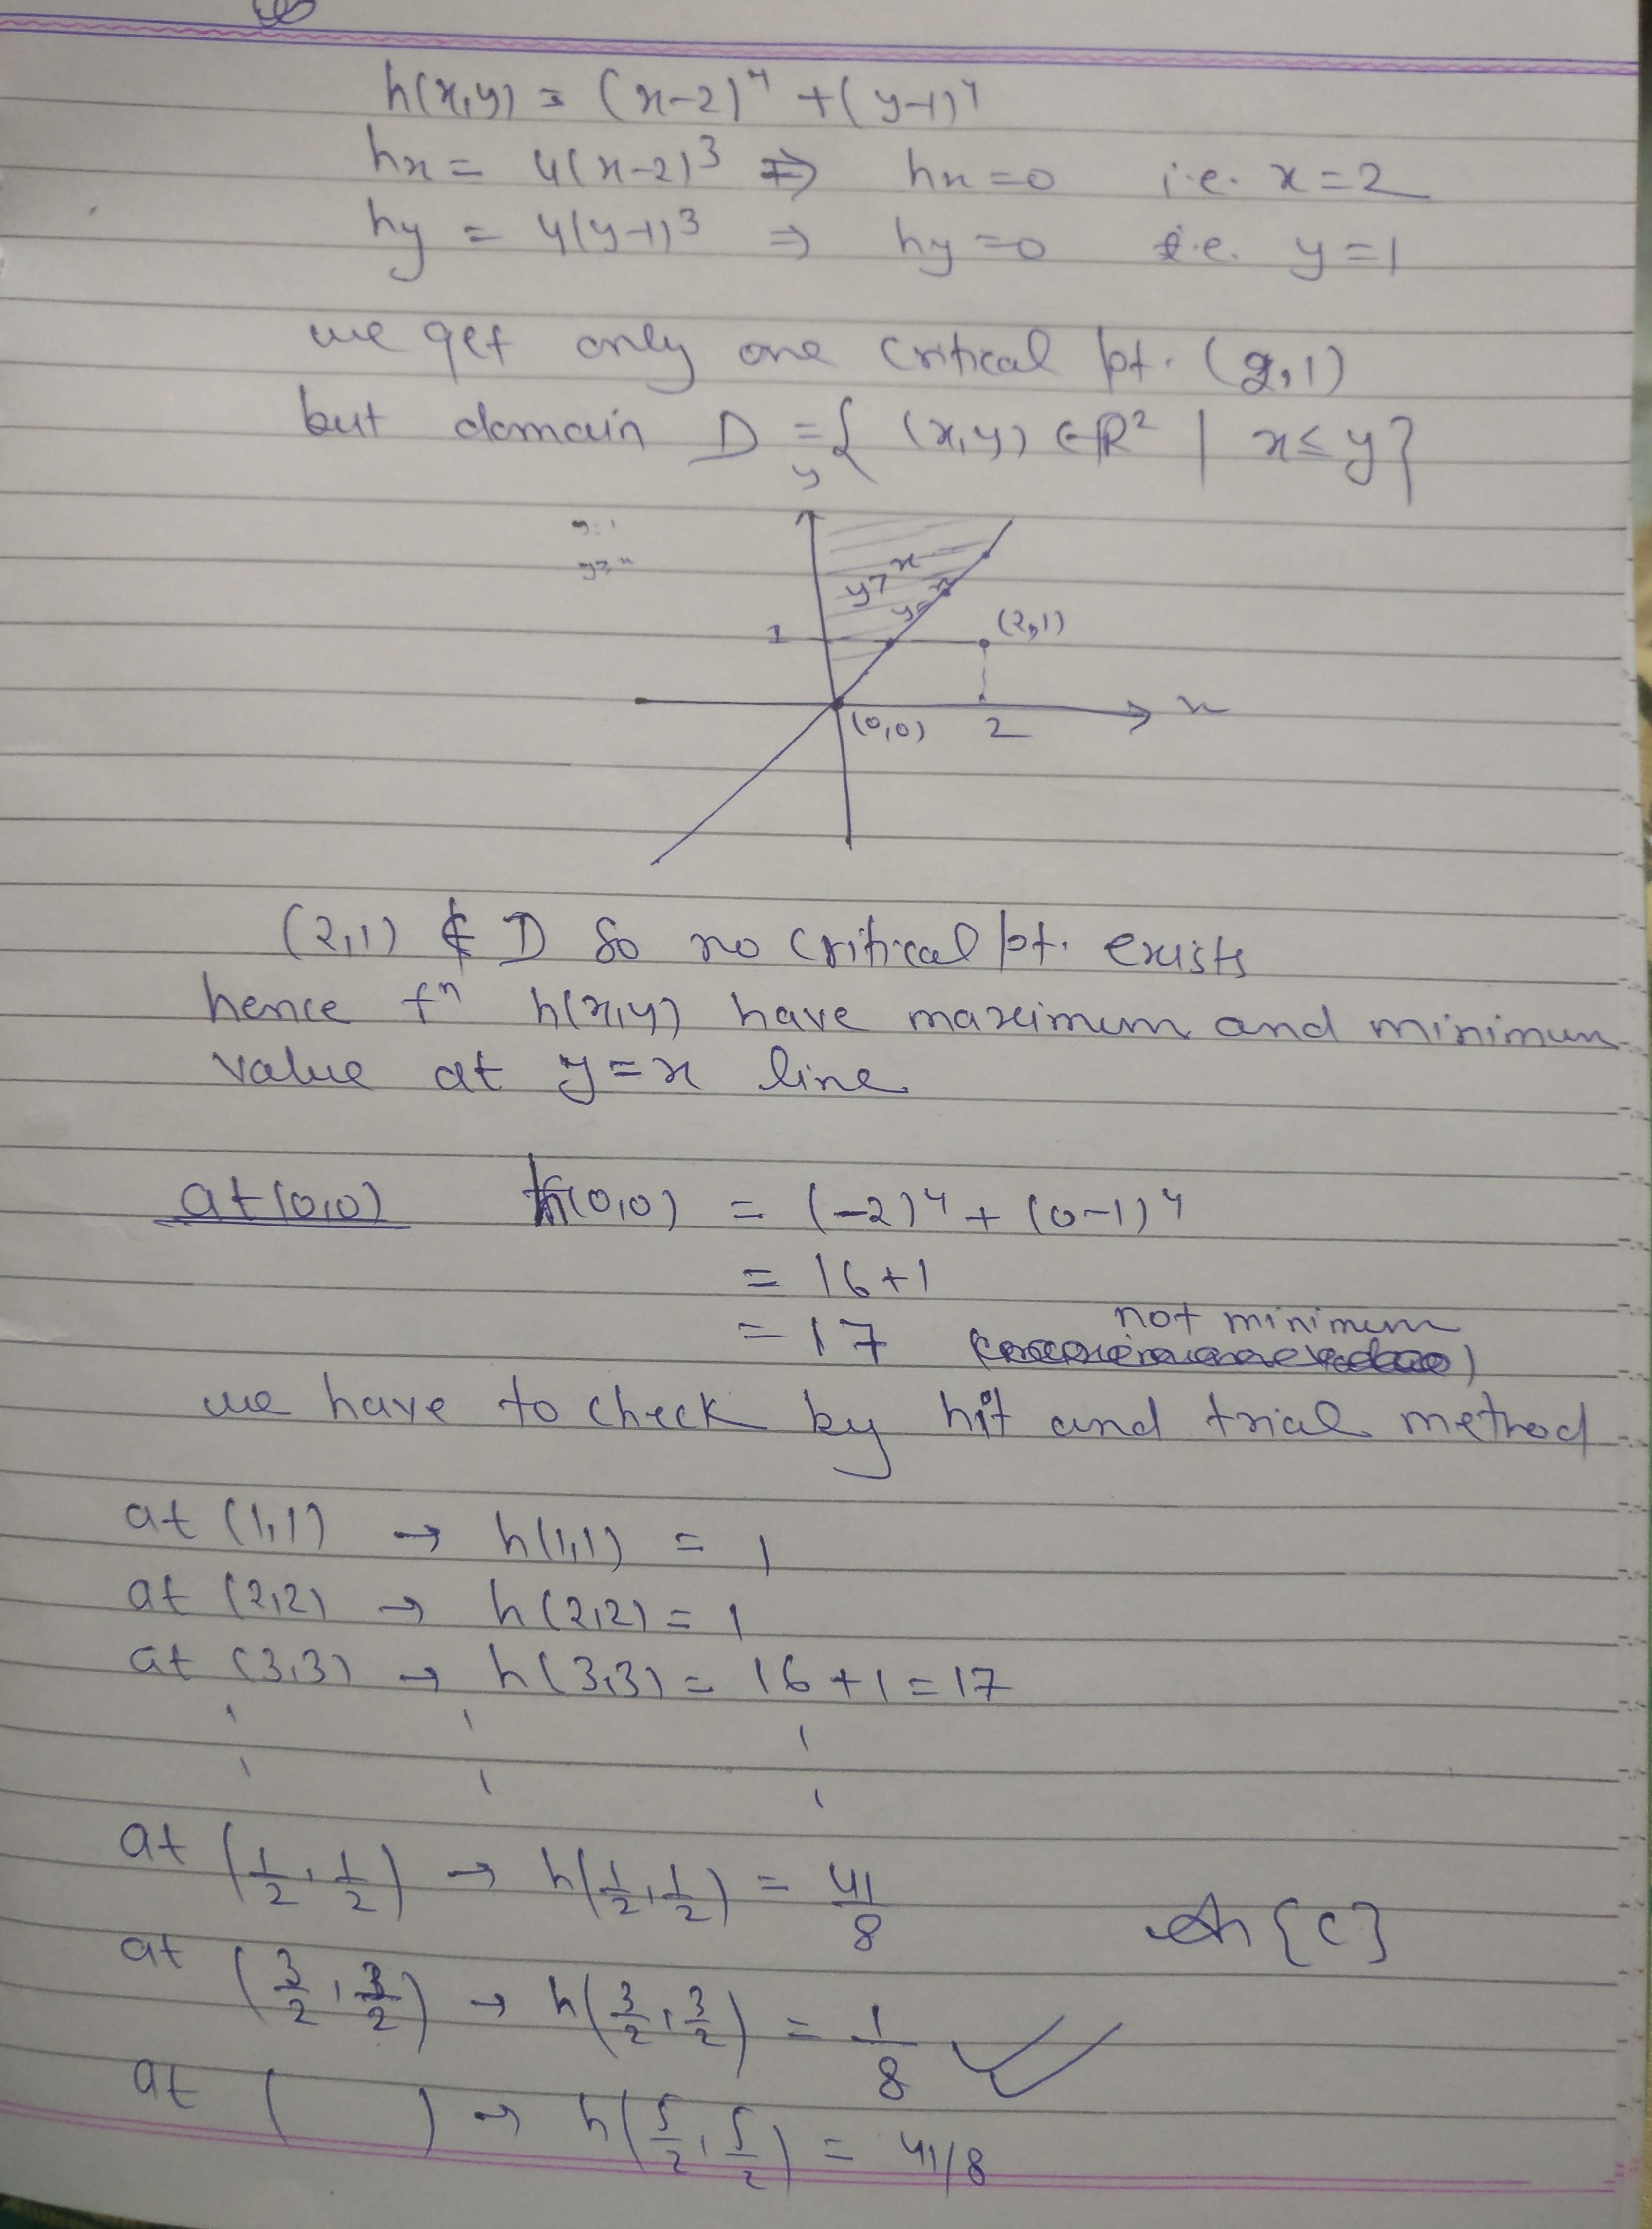 h(x,y) = (x-2)⁴ + (y-1)⁴
hx = 4(x-2)³ ⇒ hx=0 i.e. x=2
hy = 4(y-1)³ ⇒ hy=0 i.e. y=1
we get only one critical pt. (2,1)
but domain D = { (x,y) ∈ ℝ² | x≤y}
y
y>x
y=x
1
(2,1)
x
(0,0)
2
(2,1) ∉ D So no critical pt. exists
hence fⁿ h(x,y) have maximum and minimum
value at y=x line
at (0,0) h(0,0) = (-2)⁴ + (0-1)⁴
= 16+1
= 17 not minimum
we have to check by hit and trial method
at (1,1) → h(1,1) = 1
at (2,2) → h(2,2) = 1
at (3,3) → h(3,3) = 16+1=17
at (1/2, 1/2) → h(1/2, 1/2) = 41/8
{C}
at (3/2, 3/2) → h(3/2, 3/2) = 1/8
at ( ) → h(5/2, 5/2) = 41/8